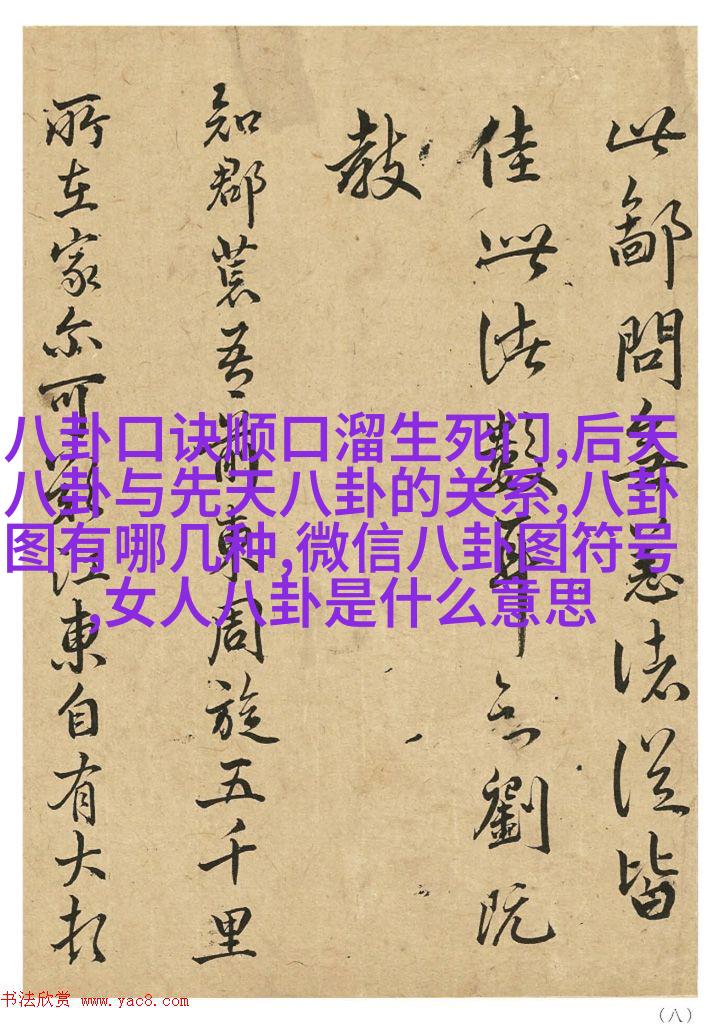 此鄙問無恙諸從皆
佳此法數耳劉既
教
知郡荒吾前東周旋五千里
所在家亦可歎江東自有大
八卦口诀顺口溜生死门,后天
八卦与先天八卦的关系,八卦
图有哪几种,微信八卦图符号
,女人八卦是什么意思
书法欣赏 www.yac8.com
（八）